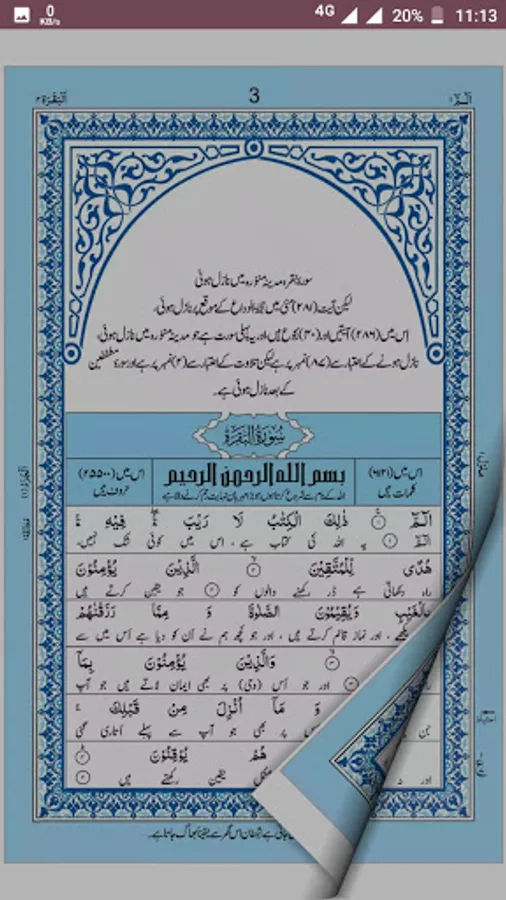 0 KB/s 4G 20% 11:13
الٓمّٓ ۱ 3 البقرة ۲
سورۂ بقرہ مدینۂ منورہ میں نازل ہوئی
لیکن آیت (۲۸۱) منیٰ میں حجۃ الوداع کے موقع پر نازل ہوئی،
اس میں (۲۸۶) آیتیں اور (۴۰) رکوع ہیں اور یہ پہلی سورت ہے جو مدینہ منورہ میں نازل ہوئی،
نازل ہونے کے اعتبار سے (۸۷) نمبر پر ہے لیکن تلاوت کے اعتبار سے (۲) نمبر پر ہے اور سورۂ مطففین
کے بعد نازل ہوئی ہے۔
سُوْرَةُ الْبَقَرَةِ
اس میں (۶۱۲۱) کلمات ہیں
بسم الله الرحمن الرحيم
اللہ کے نام سے شروع کرتا ہوں جو بڑا مہربان نہایت رحم کرنے والا ہے
اس میں (۲۵۵۰۰) حروف ہیں
الٓمّٓ ۝۱ ذٰلِكَ الْكِتٰبُ لَا رَيْبَ ۛ فِيْهِ ۛ
الٓمّٓ ۝۱ یہ اللہ کی کتاب ہے، اس میں کوئی شک نہیں،
هُدًى لِّلْمُتَّقِيْنَ ۝۲ الَّذِيْنَ يُؤْمِنُوْنَ
راہ دکھاتی ہے ڈر رکھنے والوں کو ۝۲ جو یقین کرتے ہیں
بِالْغَيْبِ وَيُقِيْمُوْنَ الصَّلٰوةَ وَ مِمَّا رَزَقْنٰهُمْ
اور نماز قائم کرتے ہیں، اور جو کچھ ہم نے اُن کو دیا ہے اس میں سے
۝۳ وَالَّذِيْنَ يُؤْمِنُوْنَ بِمَآ
اور جو اُس (وحی) پر بھی ایمان لاتے ہیں جو آپ
وَ مَآ اُنْزِلَ مِنْ قَبْلِكَ ۚ
پر بھی جو آپ سے پہلے اُتاری گئی
هُمْ يُوْقِنُوْنَ ۝۴
یقین رکھتے ہیں ۝۴
ہے شیطان اس گھر سے یقیناً بھاگ جاتا ہے۔